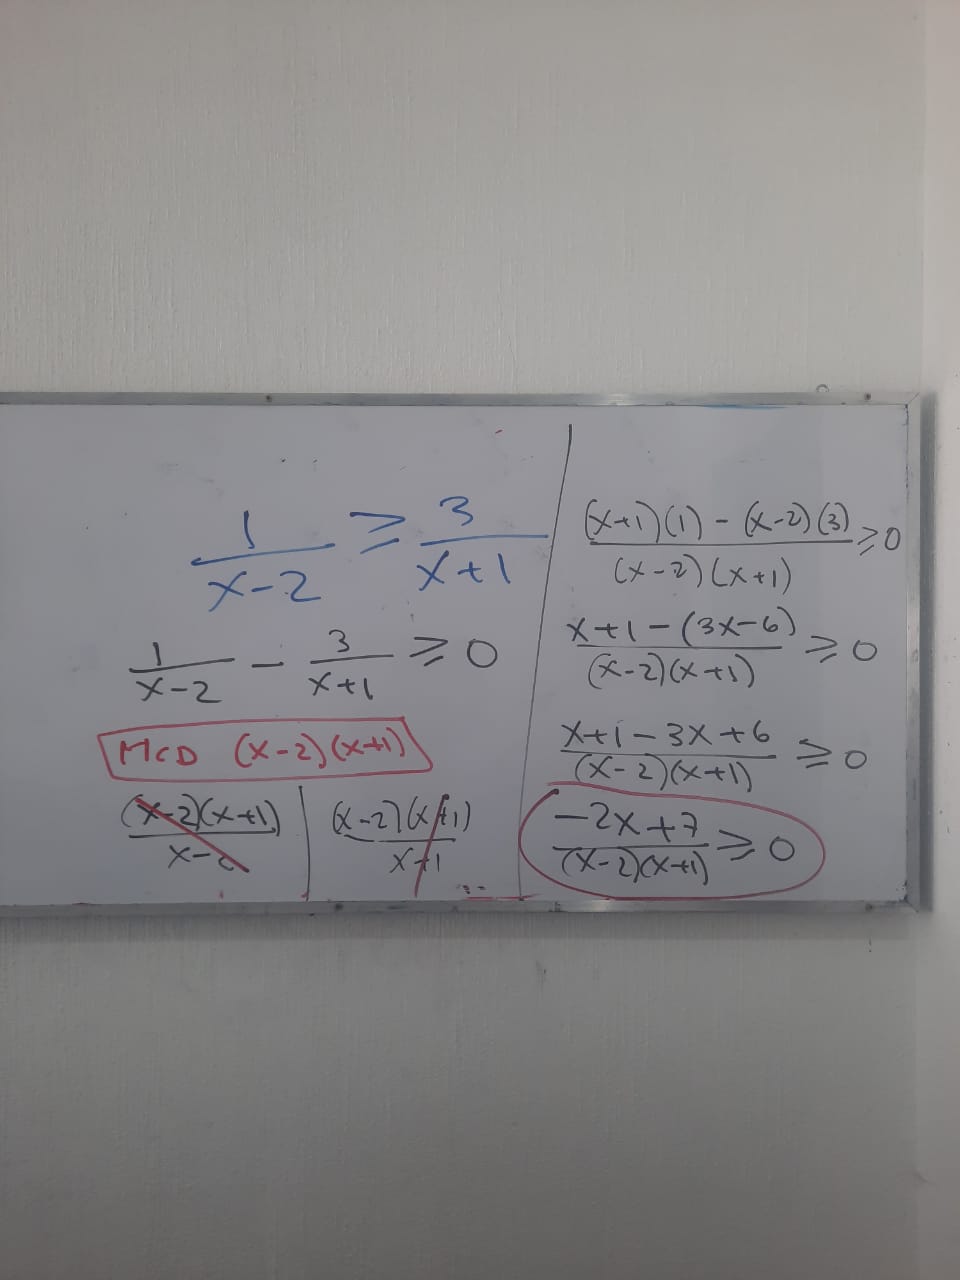 1/(x-2) ≥ 3/(x+1)
1/(x-2) - 3/(x+1) ≥ 0
McD (x-2)(x+1)
(x-2)(x+1)/(x-2) | (x-2)(x+1)/(x+1)
((x+1)(1) - (x-2)(3))/((x-2)(x+1)) ≥ 0
(x+1-(3x-6))/((x-2)(x+1)) ≥ 0
(x+1-3x+6)/((x-2)(x+1)) ≥ 0
(-2x+7)/((x-2)(x+1)) ≥ 0